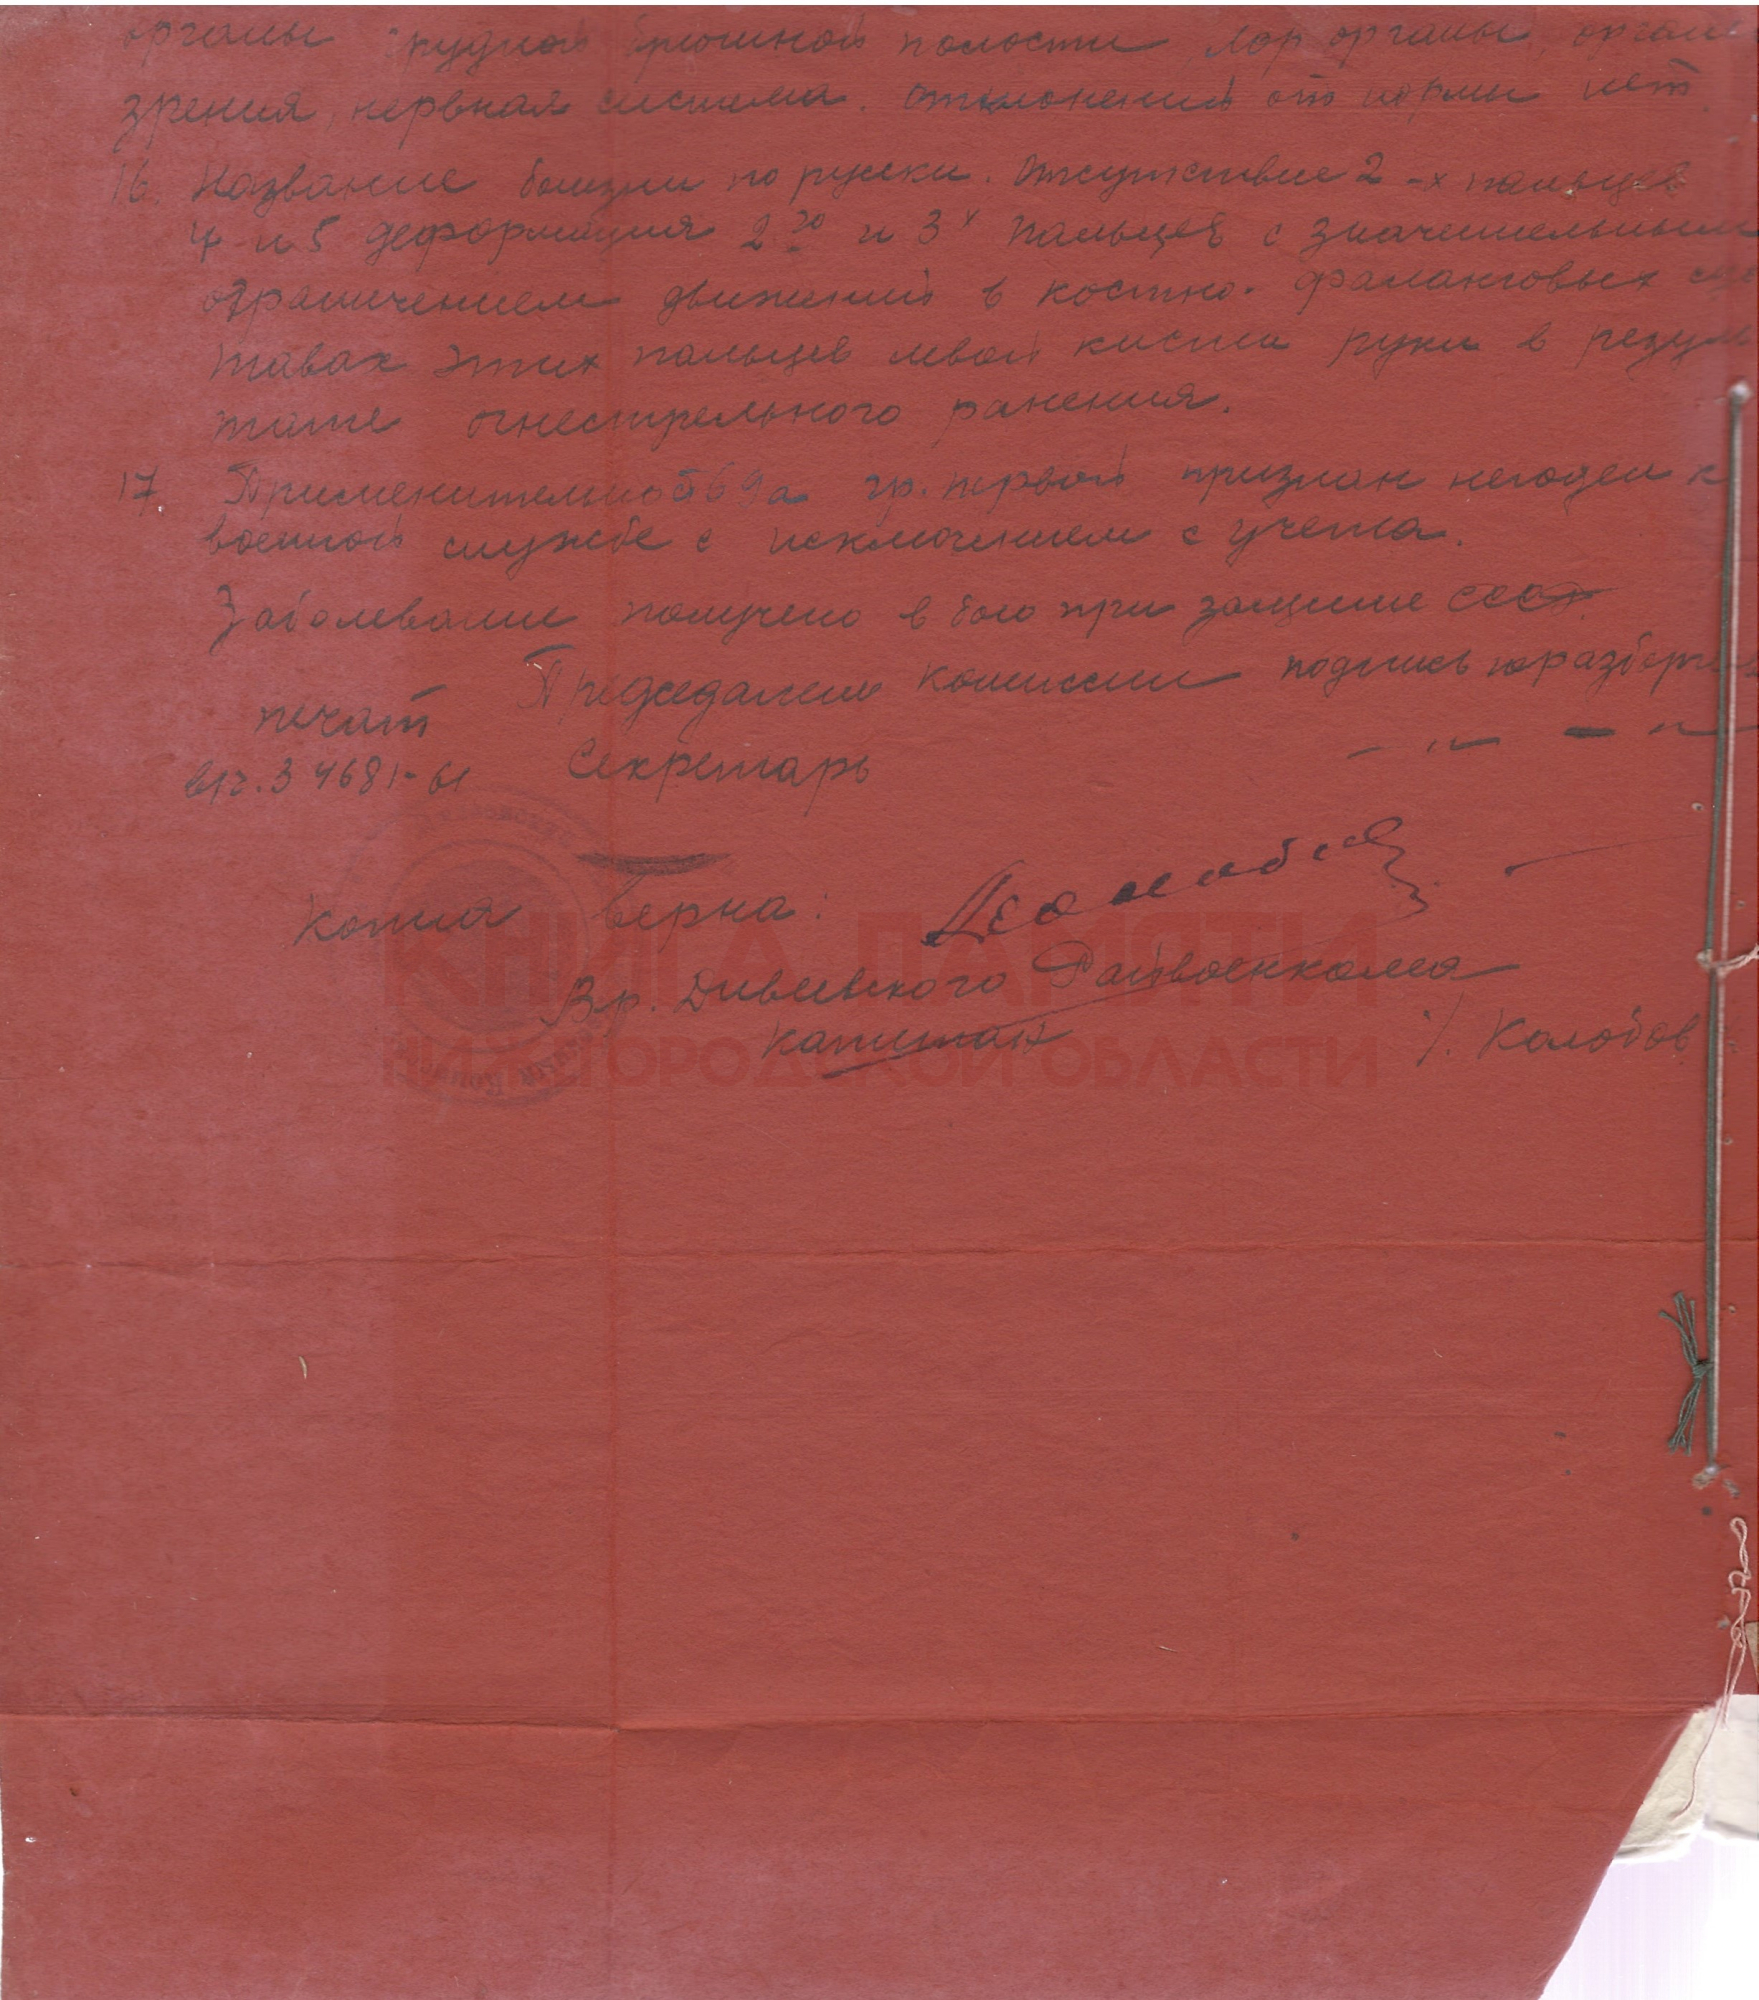 органы грудной брюшной полости, лор органы, органы
зрения, нервная система. отклонений от нормы нет.
16. Название болезни по русски. Отсутствие 2-х пальцев
4 и 5 деформация 2го и 3х пальцев с значительным
ограничением движений в костно-фаланговых сус
тавах этих пальцев левой кисти руки в резуль
тате огнестрельного ранения.
17. Применительно 69а гр. первой признан негоден к
военной службе с исключением с учета.
Заболевание получено в бою при защите СССР.
Председатель комиссии подпись
печать
Секретарь — " — — " —
Копия верна:
КНИГА ПАМЯТИ
Вр. Дивеевского Райвоенкома
капитан /. Колобов
НИЖЕГОРОДСКОЙ ОБЛАСТИ